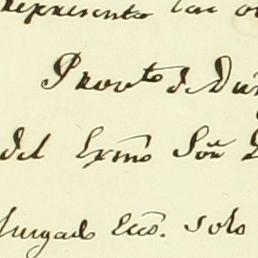 representa
Prov.to de
del Exmo Sor
Juzgado Ecco. solo